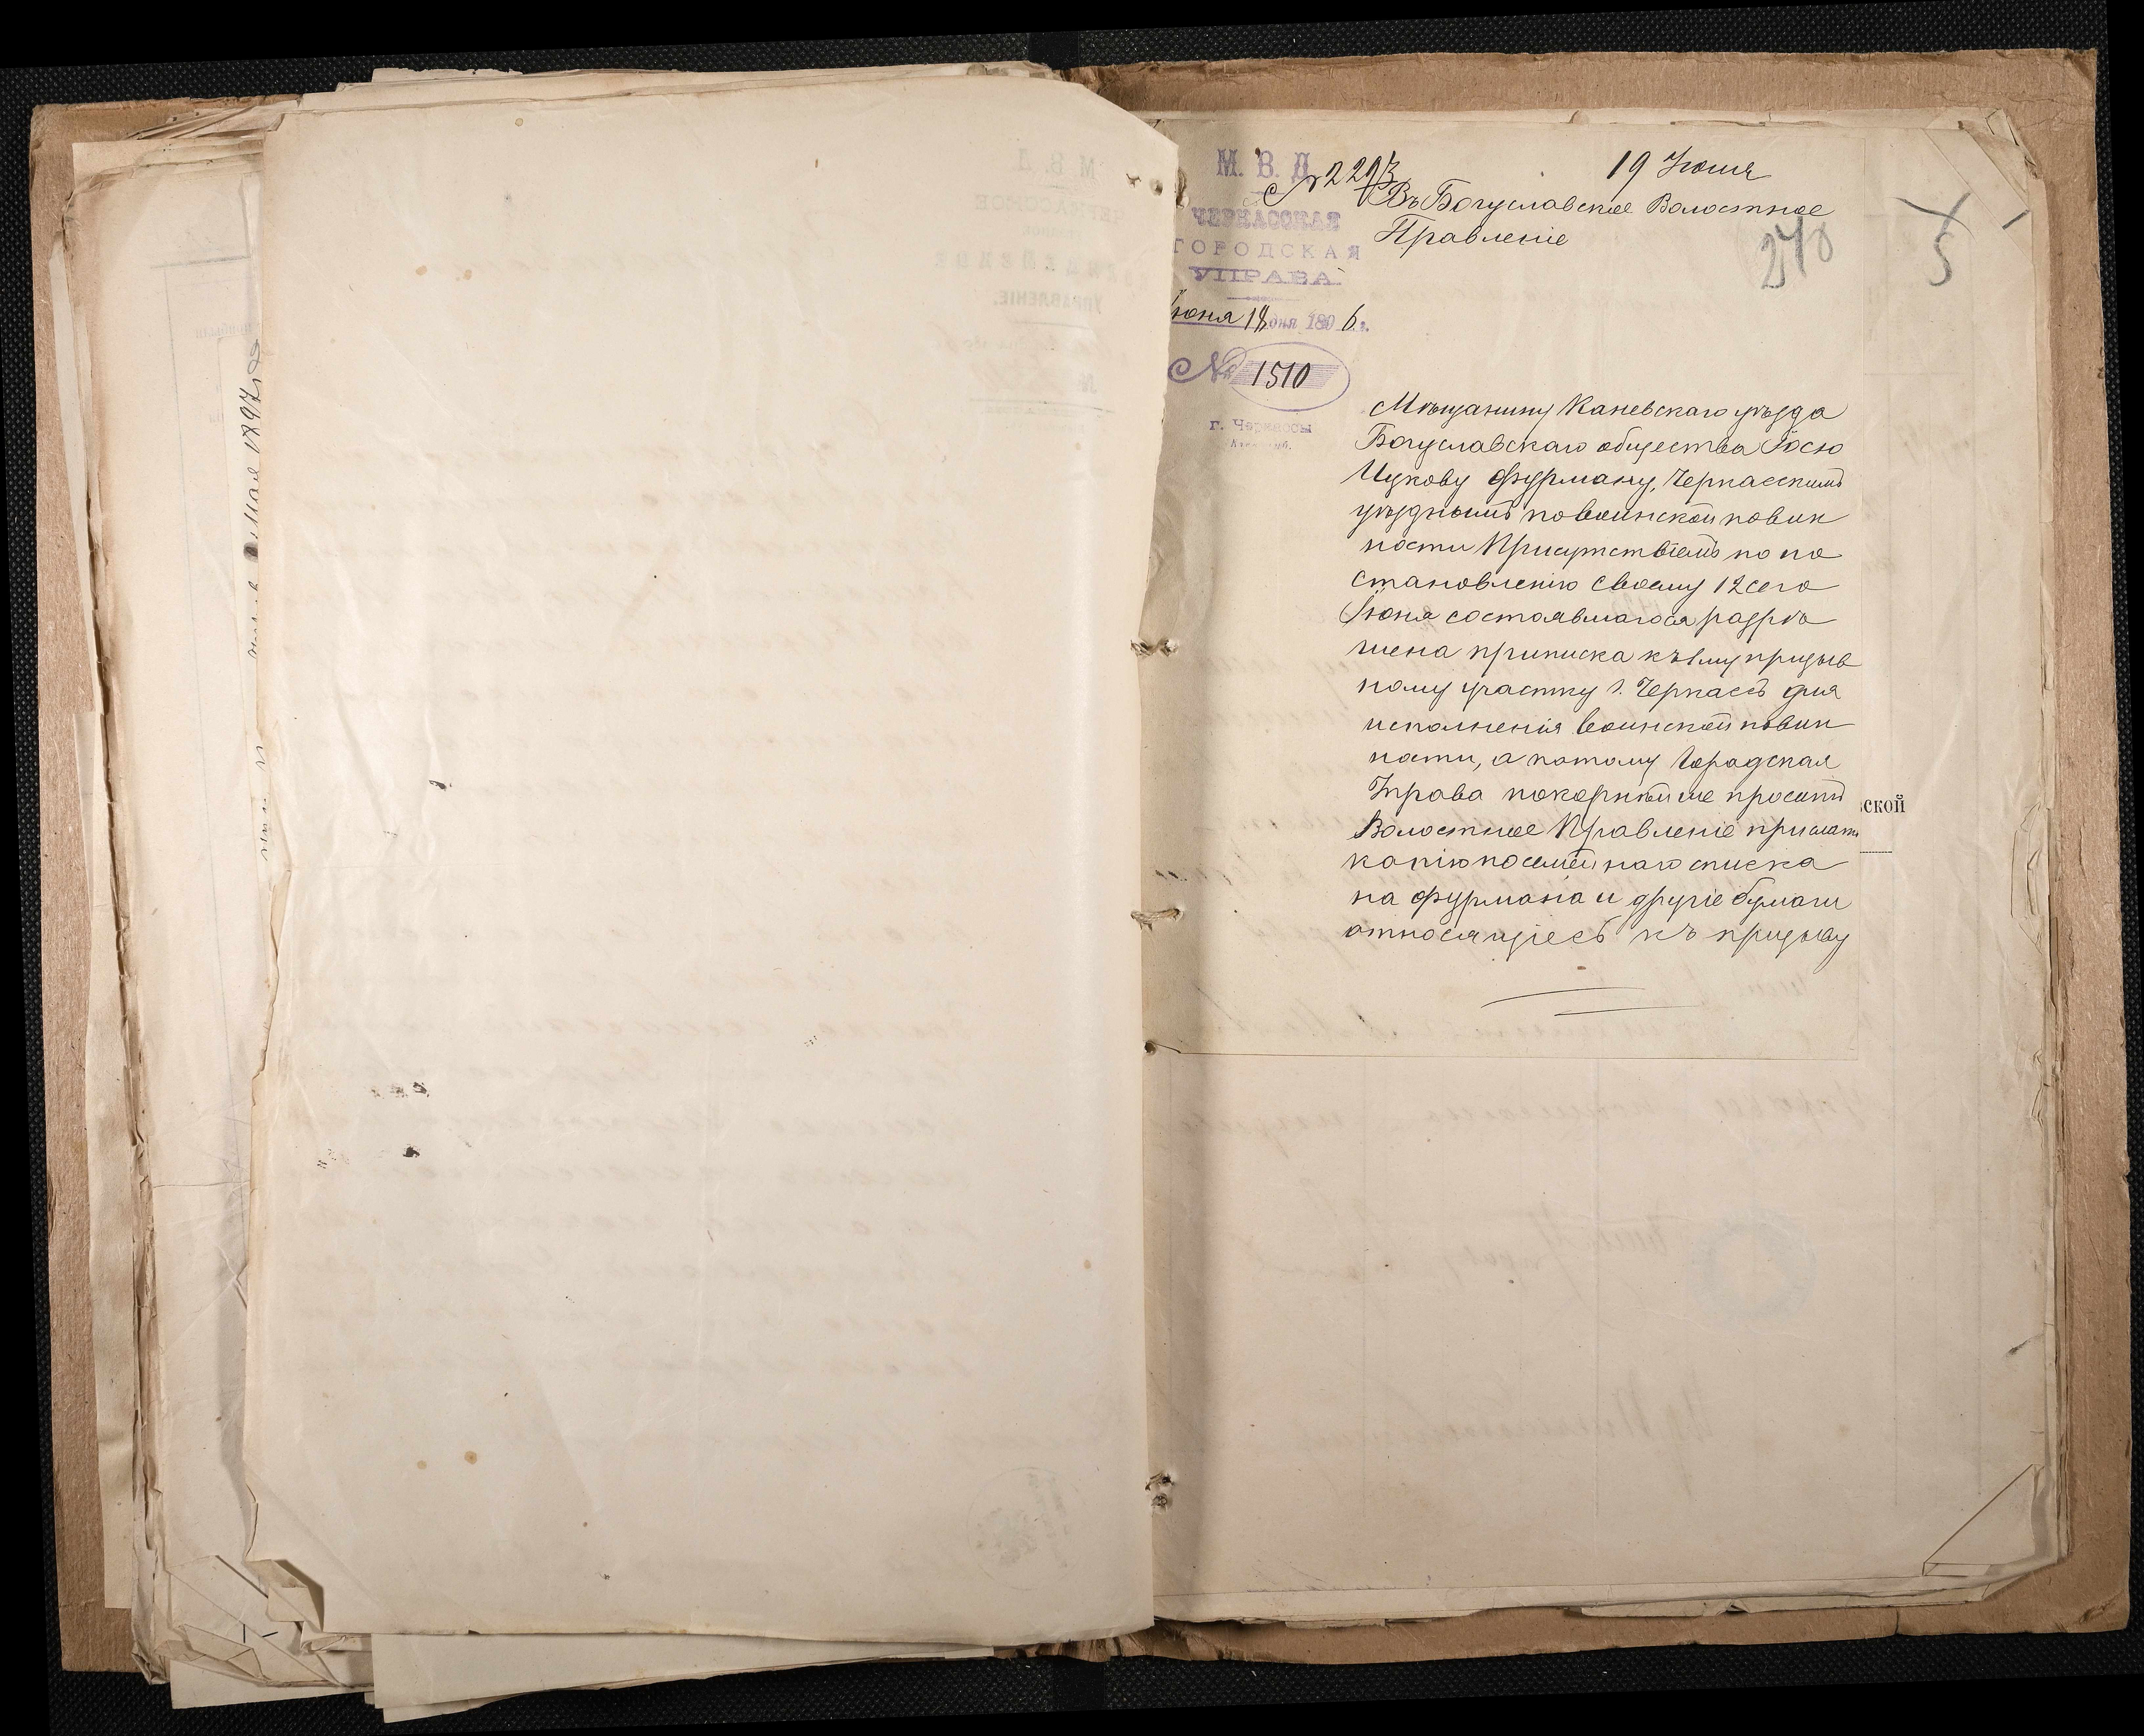 мая 1897 го
М. В. Д.
ЧЕРКАССКАЯ
ГОРОДСКАЯ
УПРАВА
Іюня 18 дня 1896 г.
№ 1510
г. Черкассы
№ 2293
19 Июня
Въ Богуславское Волостное
Правленіе
270
5
Мѣщанину Каневскаго уѣзда
Богуславскаго общества Йосю
Ицкову Фурману, Черкасскимъ
уѣзднымъ по воинской повин
ности Присутствіемъ по по
становленію своему 12 сего
Іюня состоявшагося разрѣ
шена приписка къ 1му призыв
ному участку г. Черкассъ для
исполненія воинской повин
ности, а потому Городская
Управа покорнѣйше проситъ
Волостное Правленіе прислать
копію посемейнаго списка
на Фурмана и другіе бумаги
относящіесь къ призыву
ской